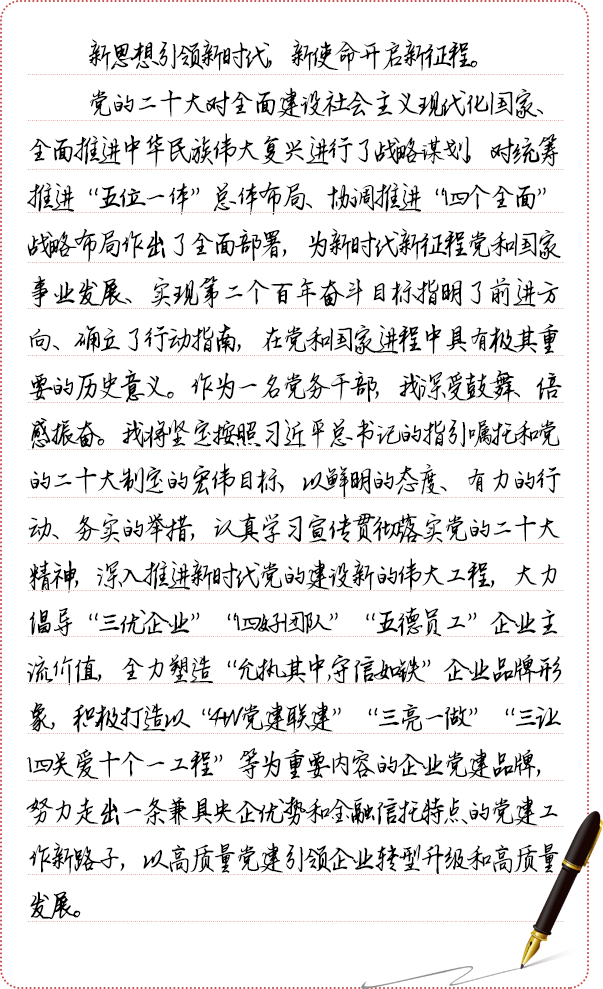 新思想引领新时代，新使命开启新征程。
党的二十大对全面建设社会主义现代化国家、
全面推进中华民族伟大复兴进行了战略谋划，对统筹
推进“五位一体”总体布局、协调推进“四个全面”
战略布局作出了全面部署，为新时代新征程党和国家
事业发展、实现第二个百年奋斗目标指明了前进方
向、确立了行动指南，在党和国家进程中具有极其重
要的历史意义。作为一名党务干部，我深受鼓舞、倍
感振奋。我将坚定按照习近平总书记的指引嘱托和党
的二十大制定的宏伟目标，以鲜明的态度、有力的行
动、务实的举措，认真学习宣传贯彻落实党的二十大
精神，深入推进新时代党的建设新的伟大工程，大力
倡导“三优企业”“四好团队”“五德员工”企业主
流价值，全力塑造“允执其中，守信如铁”企业品牌形
象，积极打造以“4W党建联建”“三亮一做”“三让
四关爱十个一工程”等为重要内容的企业党建品牌，
努力走出一条兼具央企优势和金融信托特点的党建工
作新路子，以高质量党建引领企业转型升级和高质量
发展。